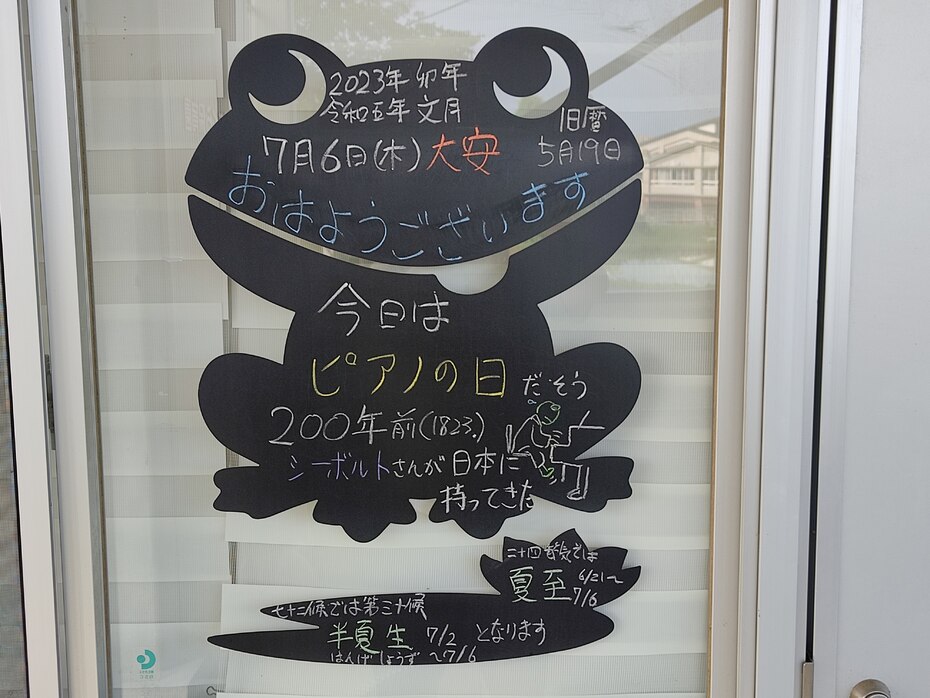 2023年 卯年
令和五年 文月
旧暦
5月19日
7月6日(木) 大安
おはようございます
今日は
ピアノの日 だそう
200年前(1823.)
シーボルトさんが日本に
持ってきた
二十四節気では
夏至 6/21〜
7/6
七十二候では第三十候
半夏生 7/2 となります
はんげ しょうず 〜7/6